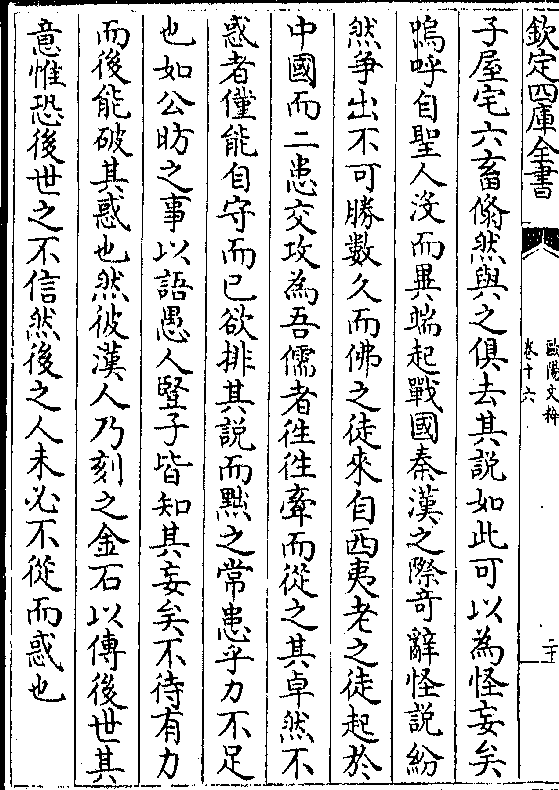 欽定四庫全書
歐陽文粹
卷十六
二十
子屋宅六畜翛然與之俱去其說如此可以為怪妄矣
嗚呼自聖人沒而異端起戰國秦漢之際奇辭怪說紛
然爭出不可勝數久而佛之徒來自西夷老之徒起於
中國而二患交攻為吾儒者徃徃牽而從之其卓然不
惑者僅能自守而已欲排其說而黜之常患乎力不足
也如公昉之事以語愚人豎子皆知其妄矣不待有力
而後能破其惑也然彼漢人乃刻之金石以傳後世其
意惟恐後世之不信然後之人未必不從而惑也